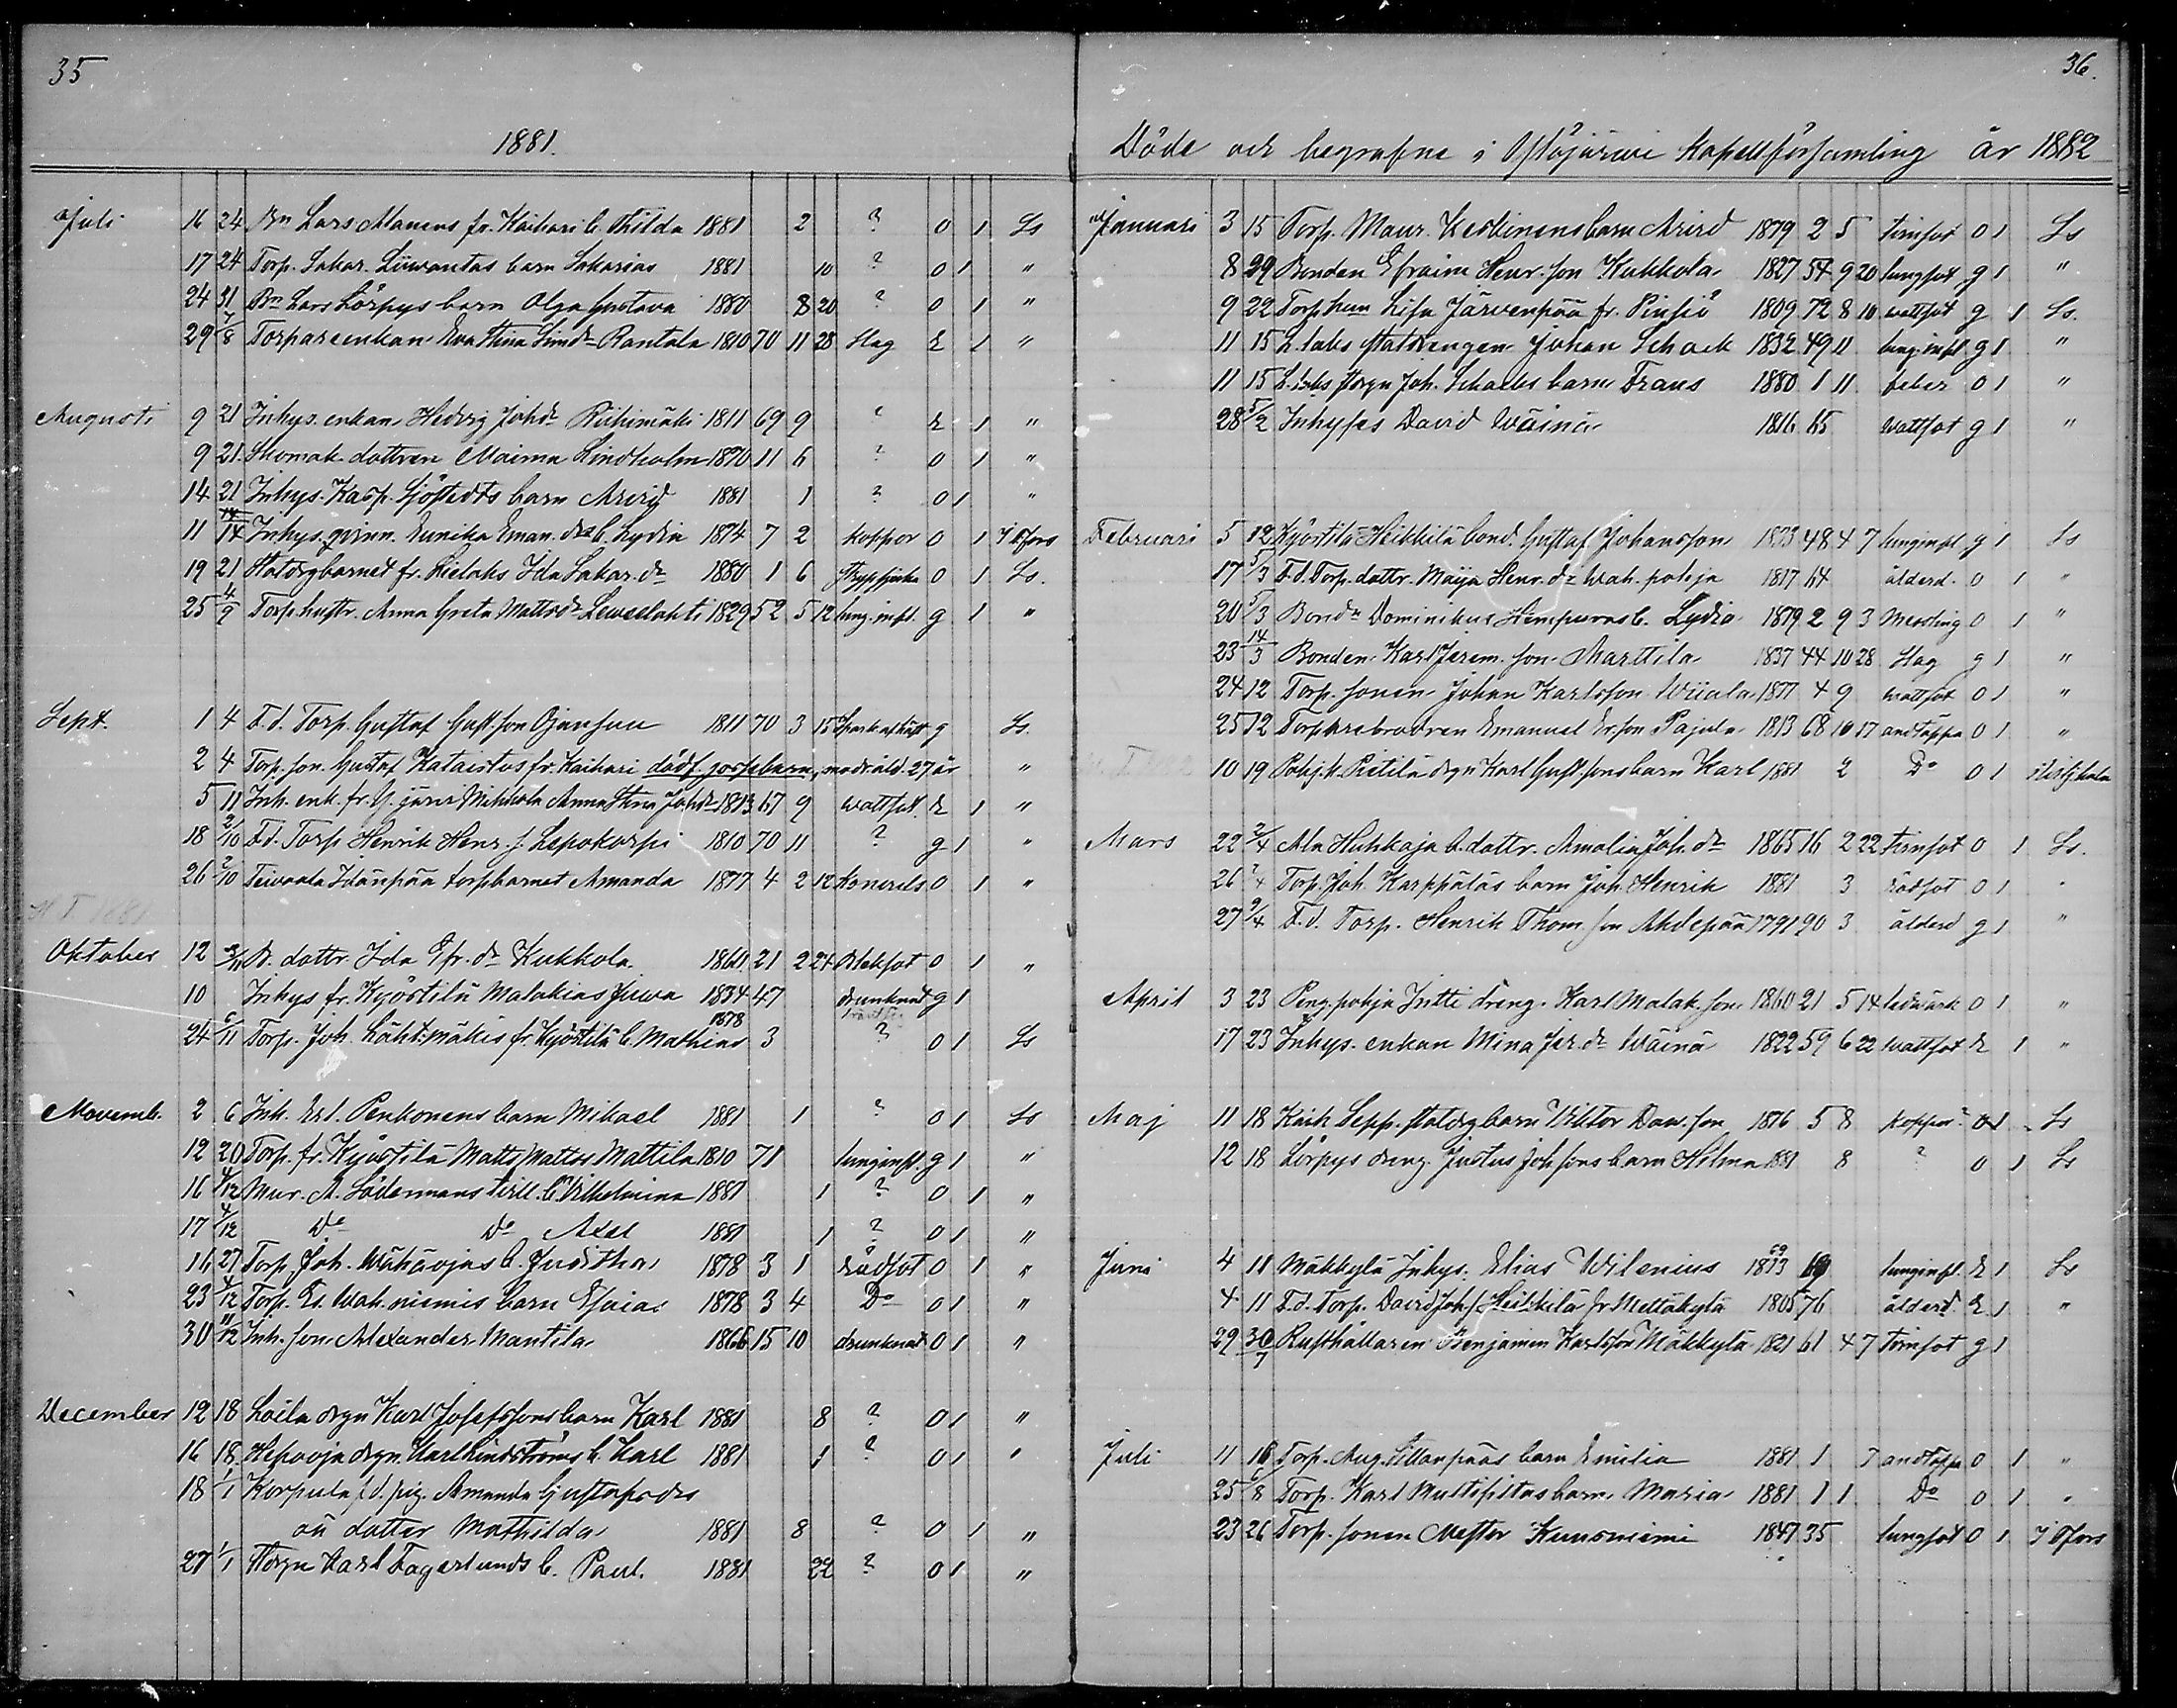 35
1881.
Juli 16 24 Bn Lars Manens fr. Kaihari b. Hilda 1881 2 ? o 1 Ls
17 24 Torp. Sakar. Liuwantas barn Sakarias 1881 10 ? o 1 "
24 31 Bn Lars Lörpys barn Olga Gustava 1880 8 20 ? o 1 "
29 7/8 Torpareenkan Eva Stina Simdr Rantala 1810 70 11 28 Slag E 1 "
Augusti 9 21 Inhys. enkan Hedvig Johdr Riihimäki 1811 69 9 ? E 1 "
9 21. Skomak. dottren Maima Lindholm 1870 11 6 ? o 1 "
14 21 Inhys. Kasp. Sjöstedts barn Arvid 1881 1 ? o 1 "
11 14 Inhys. qvinn. Eunika Eman. drs b. Lydia 1874 7 2 koppor o 1 T Fors
19 21 Statdrgbarnet fr. Lielaks Ida Sakar. dr 1880 1 6 strypsjuka o 1 Ls.
25 4/9 Torp. hustr. Anna Greta Mattsdr Leweelahti 1829 52 5 12 lung. infl. g 1 "
Sept. 1 4 F.d. Torp. Gustaf Gust. son Ojansuu 1811 70 3 15 g Ls.
2 4 Torp. son Gustaf Kataistos fr. Kaihari dödf. gossebarn, modr åld. 27 år "
5 11 Inh. enk. fr. Y. järvi Mikkola Anna Stina Johdr 1813 67 9 wattsot. E 1 "
18 2/10 F.d. Torp Henrik Henr. s. Lepokorpi 1810 70 11 ? g 1 "
26 2/10 Teivaala Idänpää torpbarnet Amanda 1877 4 2 12 Koncvels o 1 "
H T 1881
Oktober 12 B. dottr. Ida Efr. dr Kukkola 1860 21 2 24 Bleksot o 1 "
10 Inhys fr. Kyöstilä Malakias Juwa 1834 47 drunknat g 1
24 6/11 Torp. Joh. Lähtimäkis fr. Kyöstilä b. Mathias 1878 3 ? o 1 Ls
Novemb. 2 6 Inh. Erl. Penkonens barn Mikael 1881 1 ? o 1 Ls
12 20 Torp. fr. Kyöstilä Matts Mattss Mattila 1810 71 lunginfl. g 1 "
16 4/12 Mur. A. Södermans tvill. b. Vilhelmina 1881 1 ? o 1 "
17 4/12 Do Do Axel 1881 1 ? o 1 "
16 27 Torp. Joh. Wähäojas b. Juditha 1878 3 1 rödsot o 1 "
23 4/12 Torp. Es. Wah. niemis barn Esaias 1878 3 4 Do o 1 "
30 11/12 Inh. son Alexander Mantila 1866 15 10 drunknat o 1 "
December 12 18 Laila drgn Karl Josefssons barn Karl 1881 8 ? o 1 "
16 18 Hepooja drgn. Karl Lindströms b. Karl 1881 1 ? o 1 "
18 1/1 Korpula f.d. pig. Amanda Gustafsdrs
oä dotter Mathilda 1881 8 ? o 1 "
27 1/1 Stdrgn Karl Fagerlunds b. Paul. 1881 22 ? o 1 "
36.
Döde och begrafne i Ylöjärwi Kapellförsamling år 1882
Januari 3 15 Torp. Maur. Keskinens barn Arvid 1879 2 5 tvinsot o 1 Ls
8 29 Bonden Efraim Henr. son Kukkola 1827 54 9 20 lungsot g 1 "
9 22 Torp. hum Lisa Järvenpää fr. Pinsiö 1809 72 8 10 wattsot g 1 Ls.
11 15 L. laks statdrengen Johan Schack 1832 49 11 lung. infl g 1 "
11 15 L. laks stdrgn Joh. Schacks barn Frans 1880 1 11 feber o 1 "
28 5/2 Inhyses David Wäinä 1816 65 wattsot g 1 "
Februari 5 12 Kyöstilä Heikkilä bond. Gustaf Johansson 1833 48 4 7 lunginfl g 1 Ls
17 5/3 F.d. Torp. dottr. Maija Henr. dr Wah. pohja 1817 64 ålderd. o 1 "
20 5/3 Bondn Dominikus Hempuras b. Lydia 1879 2 9 3 Messling o 1 "
23 14/3 Bonden Karl Jerem. son Marttila 1837 44 10 28 Slag g 1 "
24 12 Torp. sonen Johan Karlsson Wiiala 1877 4 9 wattsot o 1 "
25 12 Torparebrodren Emanuel Er. son Pajula 1813 68 10 17 andtäppa o 1 "
10 19 Pohj. k. Pitilä drgn Karl Gust. sons barn Karl 1881 2 Do o 1
Mars 22 2/4 Aln Huhkaja b. dottr. Amalia Joh. dr 1865 16 2 22 tvinsot o 1 Ls.
26 2/4 Torp. Joh. Karppäläs barn Joh. Henrik 1881 3 rödsot o 1 "
27 9/4 F.d. Torp. Henrik Thom. son Ahdepää 1791 90 3 ålderd g 1 "
April 3 23 Peng. pohja Intti dreng. Karl Malak. son 1860 21 5 14 ledwärk o 1 "
17 23 Inhys. enkan Mina Jer. dr Wäinä 1822 59 6 22 Wattsot E 1 "
Maj 11 18 Kaih. Sepp. statdrg barn Viktor Dav. son 1876 5 8 koppor? o 1 Ls
12 18 Lörpys dreng. Justus Joh. sons barn Hilma 1881 8 ? o 1 Ls
Juni 4 11 Mäkkylä Inhys. Elias Wilenius 1813 69 lunginfl. E 1 Ls
4 11 F.d. Torp. David Joh. s. Heikkilä fr Mettäkylä 1805 76 ålderd. E 1 "
29 30/7 Rusthållaren Benjamin Karlsson Mäkkylä 1821 61 4 7 tvinsot g 1
Juli 11 16 Torp. Aug. Sillanpääs barn Emilia 1881 1 7 andtäppa o 1 "
25 6/8 Torp. Karl Multisiltas barn Maria 1881 1 1 Do o 1 "
23 26 Torp. sonen Nestor Kuusniemi 1847 35 lungsot o 1 T Fors